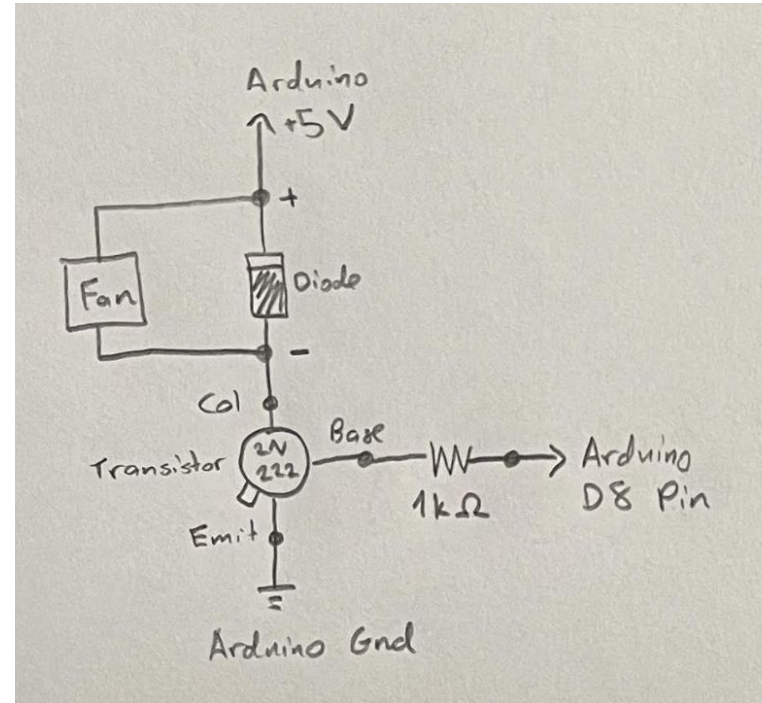 Arduino
+5V
+
Fan
Diode
-
Col
Transistor
2N
222
Base
1kΩ
Arduino
D8 Pin
Emit
Arduino Gnd